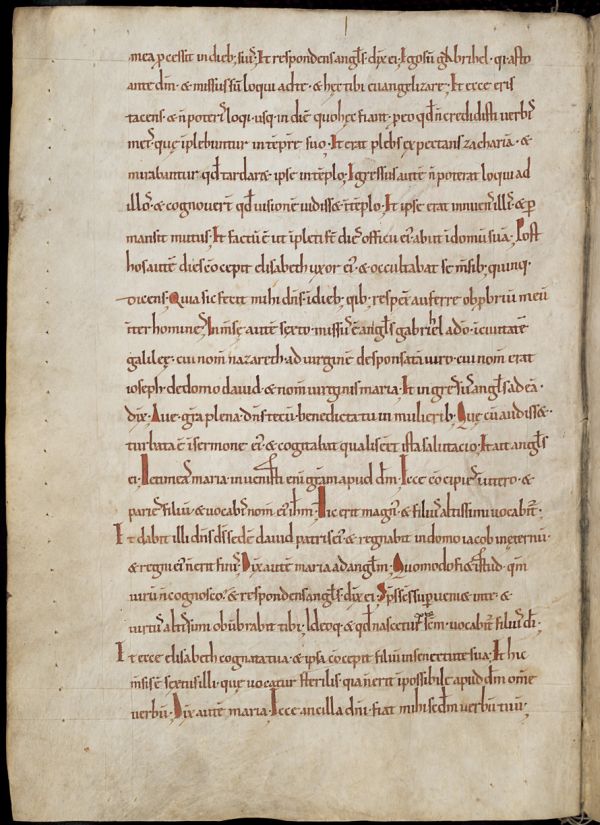 mea pcessit in dieb; suis; Et respondens angls dix ei; Ego sū gabrihel · qui asto
ante dm̄ · & missus sū loqui ad te · & hęc tibi euangelizare; Et ecce eris
tacens · & n̄ poteris loqi · usq; in diē quo hęc fiant · p eo qd n̄ credidisti uerbis
meis · quę īplebuntur in tēpre suo; Et erat plebs expectans zachariā · &
mirabantur qd tardar& ipse in tēplo; Egressus autē n̄ poterat loqui ad
illos · & cognouer̄t qd uisionē uidiss& ī tēplo; Et ipse erat innuens illis · & p
mansit mutus; Et factū ē ut īpleti st dies officii ei · abiit ī domū suā; Post
hos autē dies cōcepit elisabeth uxor ei · & occultabat se msib; quinq;
dicens; Quia sic fecit mihi dn̄s ī dieb; qib; respex auferre obprbriū meū
īter homines; In mse autē sexto · missus ē angls gabrihel a dō · ī ciuitatē
galileę · cui nom̄ nazareth · ad uirginē desponsatā uiro · cui nom̄ erat
ioseph · de domo dauid · & nom̄ uirginis maria; Et ingressus angls ad eā ·
dix · Aue gra plena · dn̄s tecū · benedicta tu in mulierib; Quę cū audiss& ·
turbata ē ī sermone ei · & cogitabat qualis eet ista salutacio; Et ait angls
ei; Ne timeas maria · inuenisti eni grām apud dm̄; Ecce cōcipies ī utero · &
paries filiū · & uocabis nom̄ ei ihm̄; Hic erit magn · & filius altissimi uocabit̄ ·
Et dabit illi dn̄s ds sedē dauid patris ei · & regnabit in domo iacob in eternū ·
& regni ei n̄ erit finis; Dix autē maria ad anglm; Quomodo fi& istud · qm̄
uirū n̄ cognosco; & respondens angls · dix ei; Sps scs supueni& in te · &
uirtus altissimi obūbrabit tibi · Ideoq; & qd nascetur ex te scm · uocabit̄ filius di ·
Et ecce elisabeth cognata tua · & ipsa cōcepit filiū in senectute sua; Et hic
msis ē sextus illi · quę uocatur sterilis · quia n̄ erit īpossibile apud dm̄ om̄e
uerbū · Dix autē maria · Ecce ancilla dn̄i · fiat mihi scdm uerbū tuū ·